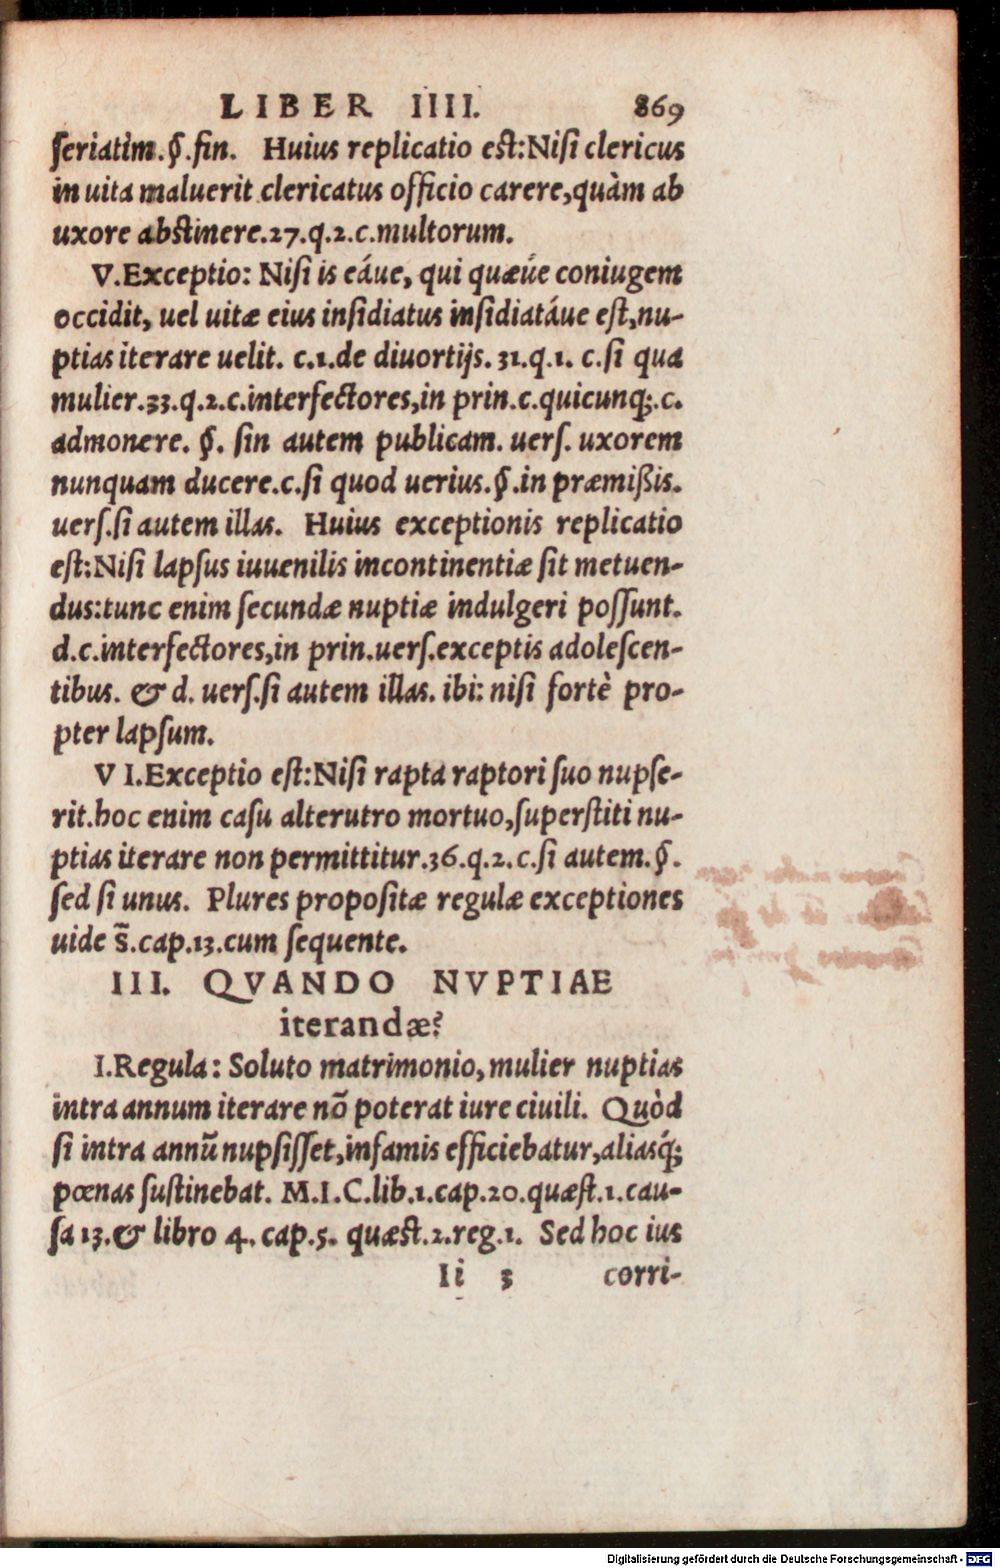 LIBER IIII. 869
ſeriatim.§.fin. Huius replicatio est:Niſi clericus
in uita maluerit clericatus officio carere,quàm ab
uxore abstinere.27.q.2.c.multorum.
V.Exceptio: Niſi is eáue, qui quæúe coniugem
occidit, uel uitæ eius inſidiatus inſidiatáue eſt,nu-
ptias iterare uelit. c.1.de diuortijs. 31.q.1. c.ſi qua
mulier.33.q.2.c.interfectores,in prin.c.quicunq;.c.
admonere. §. ſin autem publicam. uerſ. uxorem
nunquam ducere.c.ſi quod uerius.§.in præmißis.
uerſ.ſi autem illas. Huius exceptionis replicatio
eſt:Niſi lapſus iuuenilis incontinentiæ ſit metuen-
dus:tunc enim ſecundæ nuptiæ indulgeri poſſunt.
d.c.interfectores,in prin.uerſ.exceptis adoleſcen-
tibus. & d. uerſ.ſi autem illas. ibi: niſi fortè pro-
pter lapſum.
V I.Exceptio eſt:Niſi rapta raptori ſuo nupſe-
rit.hoc enim caſu alterutro mortuo,ſuperſtiti nu-
ptias iterare non permittitur.36.q.2.c.ſi autem.§.
ſed ſi unus. Plures propoſitæ regulæ exceptiones
uide s̃.cap.13.cum ſequente.
III. QVANDO NVPTIAE
iterandæ?
I.Regula: Soluto matrimonio,mulier nuptias
intra annum iterare nõ poterat iure ciuili. Quòd
ſi intra annũ nupſiſſet,infamis efficiebatur,aliasq́;
pœnas ſuſtinebat. M.I.C.lib.1.cap.20.quæſt.1.cau-
ſa 13.& libro 4. cap.5. quæst.2.reg.1. Sed hoc ius
Ii 3 corri-
Digitalisierung gefördert durch die Deutsche Forschungsgemeinschaft - DFG